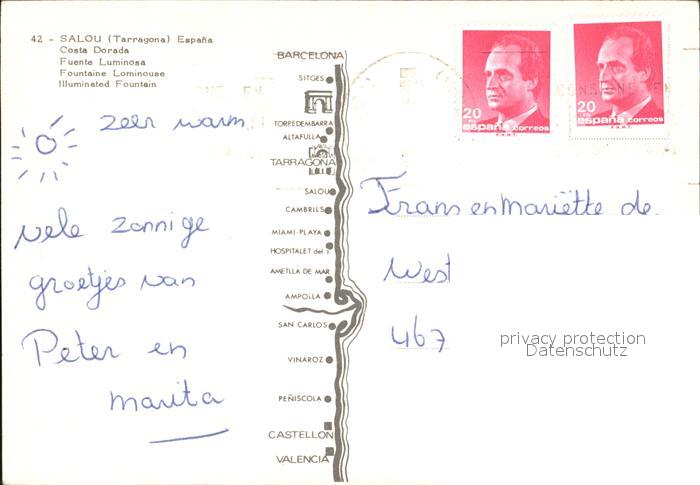 42 - SALOU (Tarragona) España
Costa Dorada
Fuente Luminosa
Fountaine Lominouse
Illuminated Fountain
zeer warm
vele zonnige
groetjes van
Peter en
Marita
BARCELONA
SITGES
TORREDEMBARRA
ALTAFULLA
TARRAGONA
SALOU
CAMBRILS
MIAMI-PLAYA
HOSPITALET del I.
AMETLLA DE MAR
AMPOLLA
SAN CARLOS
VINAROZ
PEÑISCOLA
CASTELLON
VALENCIA
20
PTA
españa correos
F.N.M.T.
20
PTA
españa correos
F.N.M.T.
Frans en Mariëtte de
West
467
privacy protection
Datenschutz